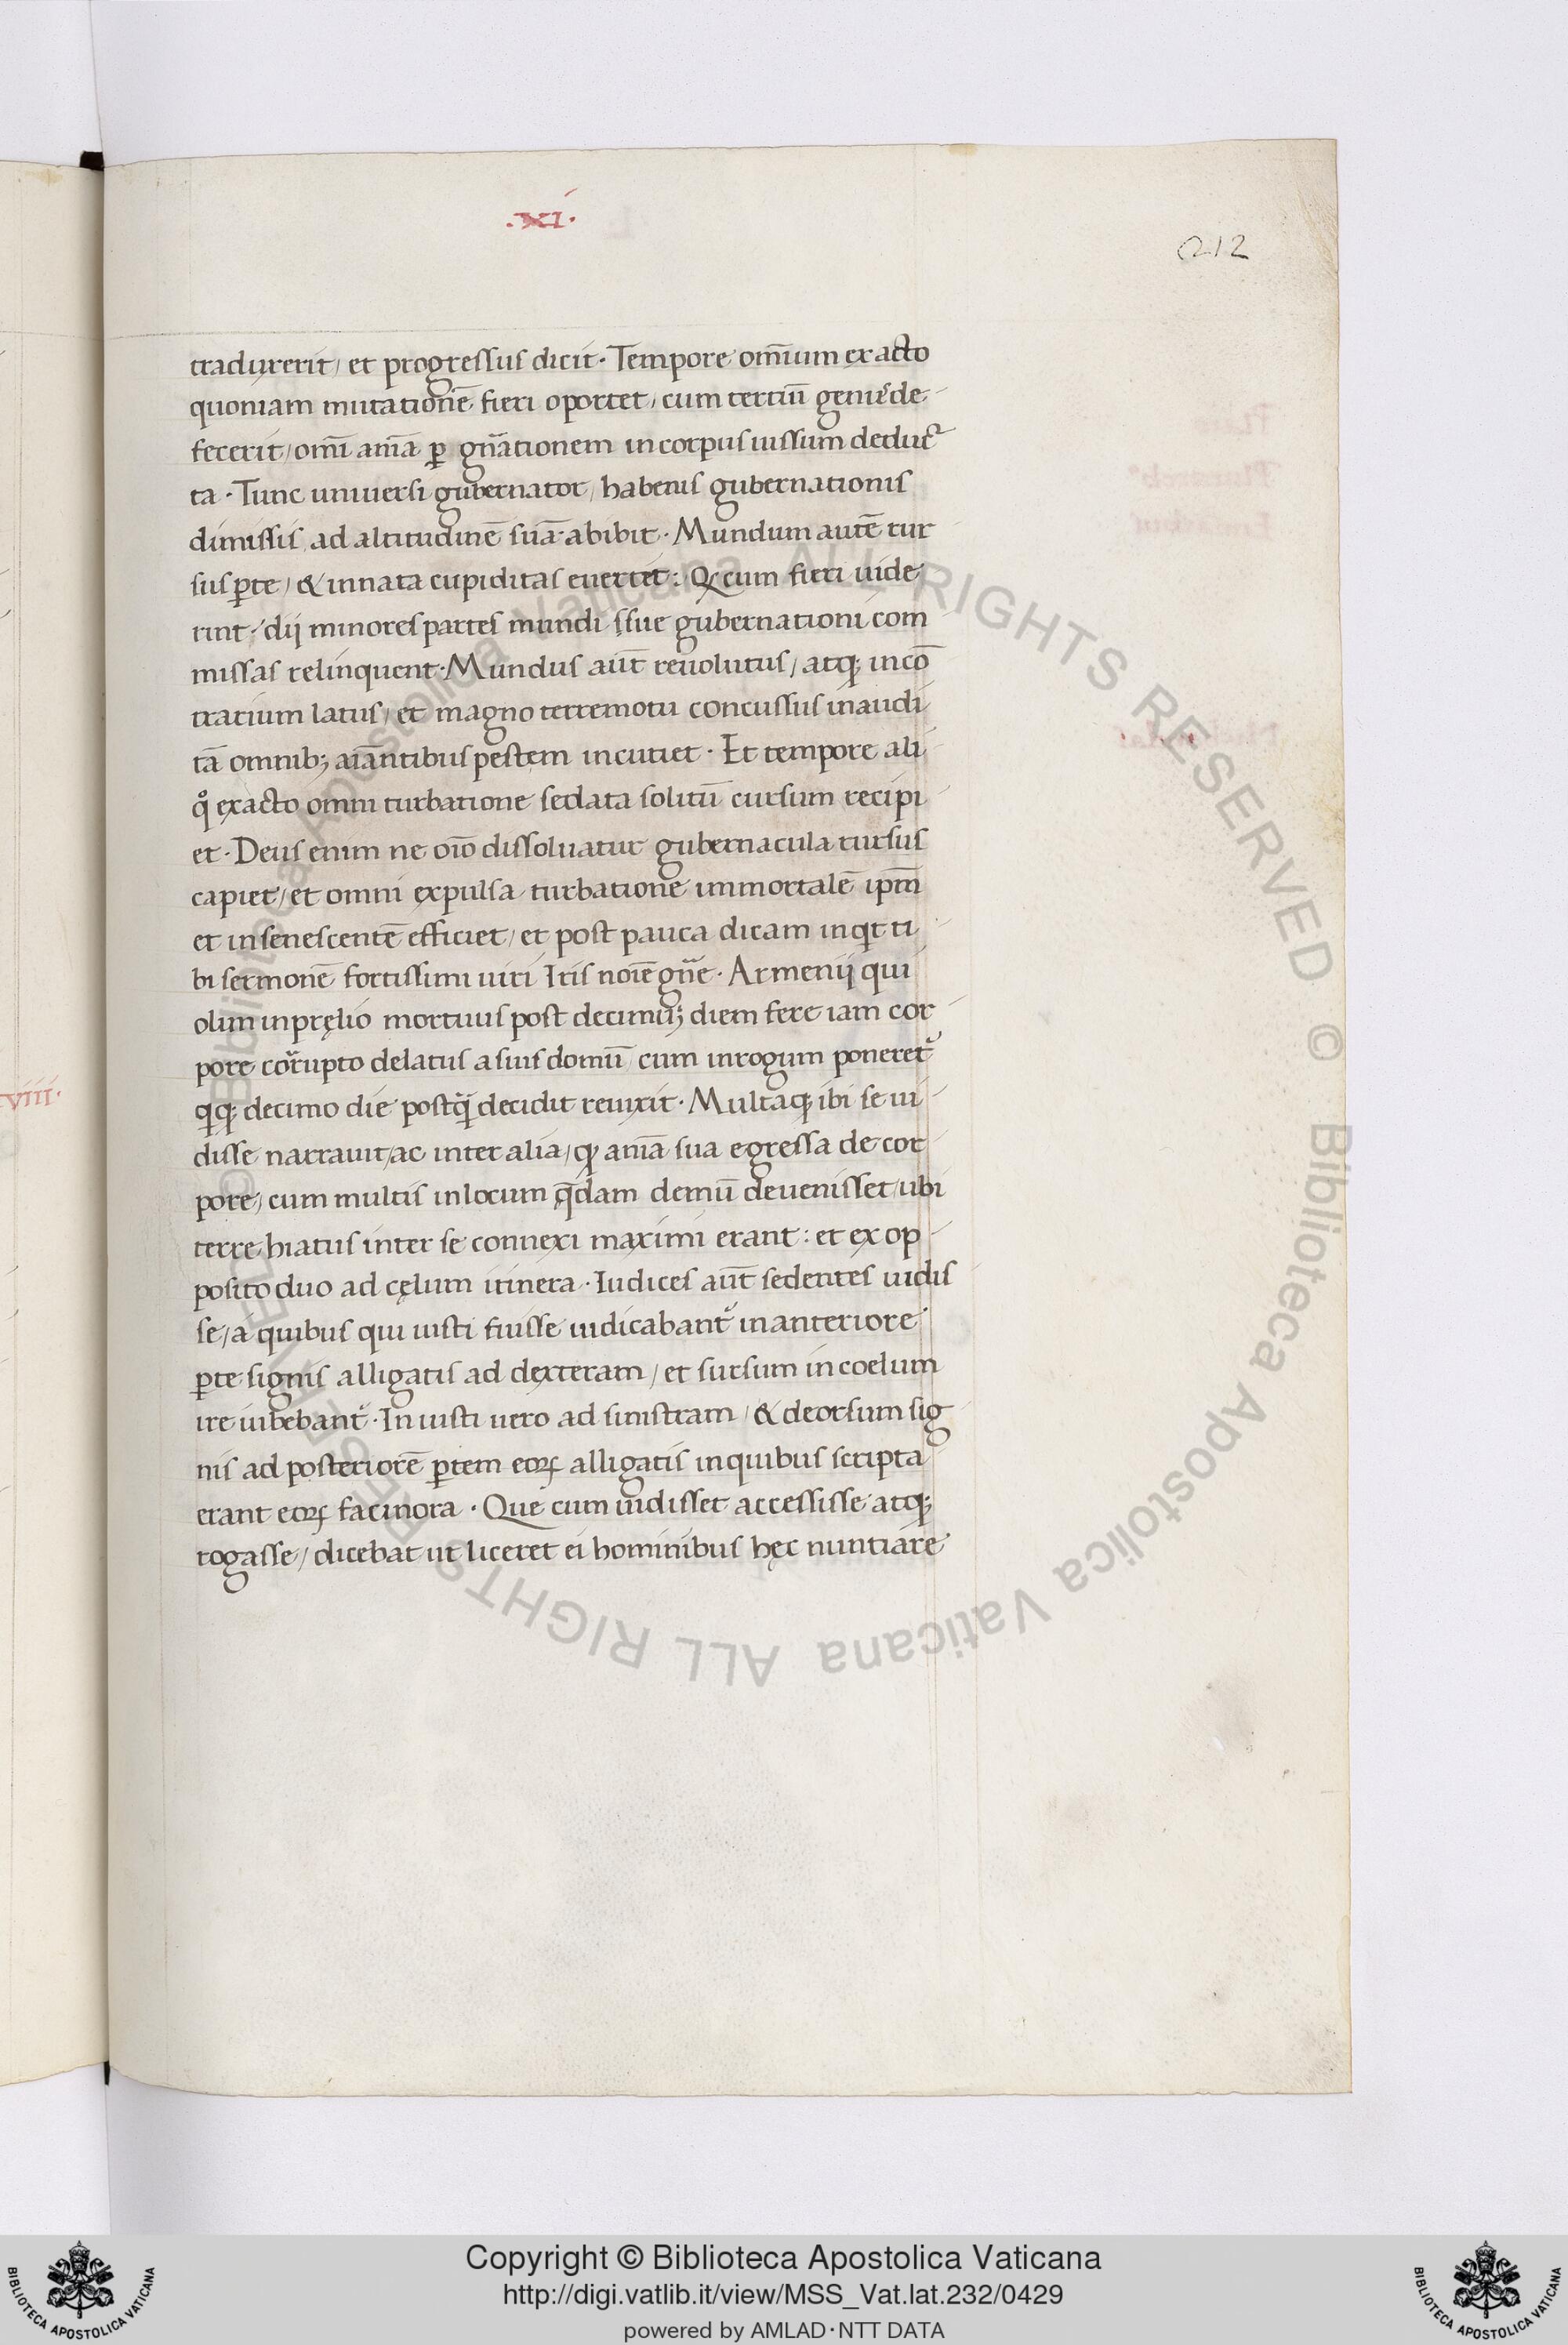 .xi.
212
traduxerit/ et progressus dicit· Tempore omīum exacto
quoniam mutationē fieri oportet/ cum tertiū genus de
fecerit/ omī aīā ꝑ gn̄ationem in corpus iussum deduc
ta· Tunc uniuersi gubernator/ habenis gubernationis
dimissis ad altitudinē suā abibit· Mundum autē rur
sus ꝑte/ & innata cupiditas euertet: Qḍ cum fieri uide
rint/ dij minores partes mundi sue gubernationi com
missas relinquent· Mundus aūt reuolutus/ atqꝫ in cō
trarium latus/ et magno terremotu concussus inaudi
tā omnibꝫ aīantibus pestem incutiet· Et tempore ali
qͦ exacto omni turbatione sedata solitū cursum recipi
et· Deus enim ne oīo dissoluatur gubernacula rursus
capiet/ et omni expulsa turbatione immortalē ip̄m
et insenescentē efficiet/ et post pauca dicam inqt ti
bi sermonē fortissimi uiri Iris noīe gn̄e· Armenij qui
olim in pręlio mortuus post decimūꝫ diem fere iam cor
pore corrupto delatus a suis domū cum in rogum poneret᷑
qqꝫ decimo die postq̄ decidit reuixit· Multaqꝫ ibi se ui
disse narrauit/ ac inter alia/ ꝙ aīā sua egressa de cor
pore/ cum multis in locum q̄dam demū deuenisset/ ubi
terre hiatus inter se connexi maximi erant: et ex op
posito duo ad cęlum itinera· Iudices aūt sedentes uidis
se/ a quibus qui iusti fuisse iudicabant᷑ in anteriore
ꝑte signis alligatis ad dexteram/ et sursum in coelum
ire iubebant᷑· Iniusti uero ad sinistram/ & deorsum sig
nis ad posteriorē ꝑtem eoꝝ alligatis in quibus scripta
erant eoꝝ facinora· Que cum uidisset accessisse atqꝫ
rogasse/ dicebat ut liceret ei hominibus hęc nuntiare
viii·
Copyright © Biblioteca Apostolica Vaticana
http://digi.vatlib.it/view/MSS_Vat.lat.232/0429
powered by AMLAD·NTT DATA
BIBLIOTECA APOSTOLICA VATICANA
BIBLIOTECA APOSTOLICA VATICANA
© Biblioteca Apostolica Vaticana ALL RIGHTS RESERVED
© Biblioteca Apostolica Vaticana ALL RIGHTS RESERVED